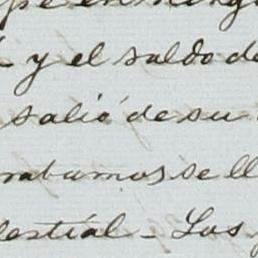 y el saldo de
salió de su
ratamos se ll
lestial - Las